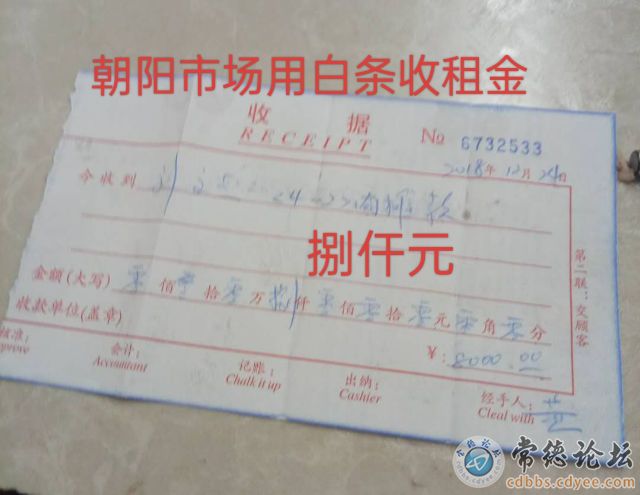 朝阳市场用白条收租金
收 据
RECEIPT
№ 6732533
2018年12月24日
今收到
款
捌仟元
金额(大写) 零佰零拾零万捌仟零佰零拾零元零角零分
收款单位(盖章)
¥:8000.00
第二联:交顾客
核准:
会计:
记账:
出纳:
经手人:
prove
Accountant
Chalk it up
Cashier
Cleal with
常德论坛
cdbbs.cdyee.com